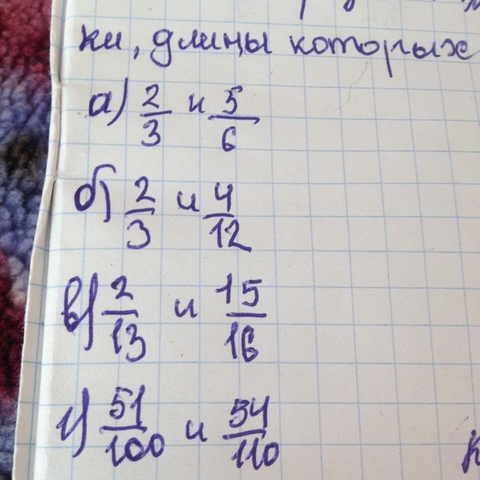 ки, длины которых
а) 2/3 и 5/6
б) 2/3 и 4/12
в) 2/13 и 15/16
г) 51/100 и 54/110